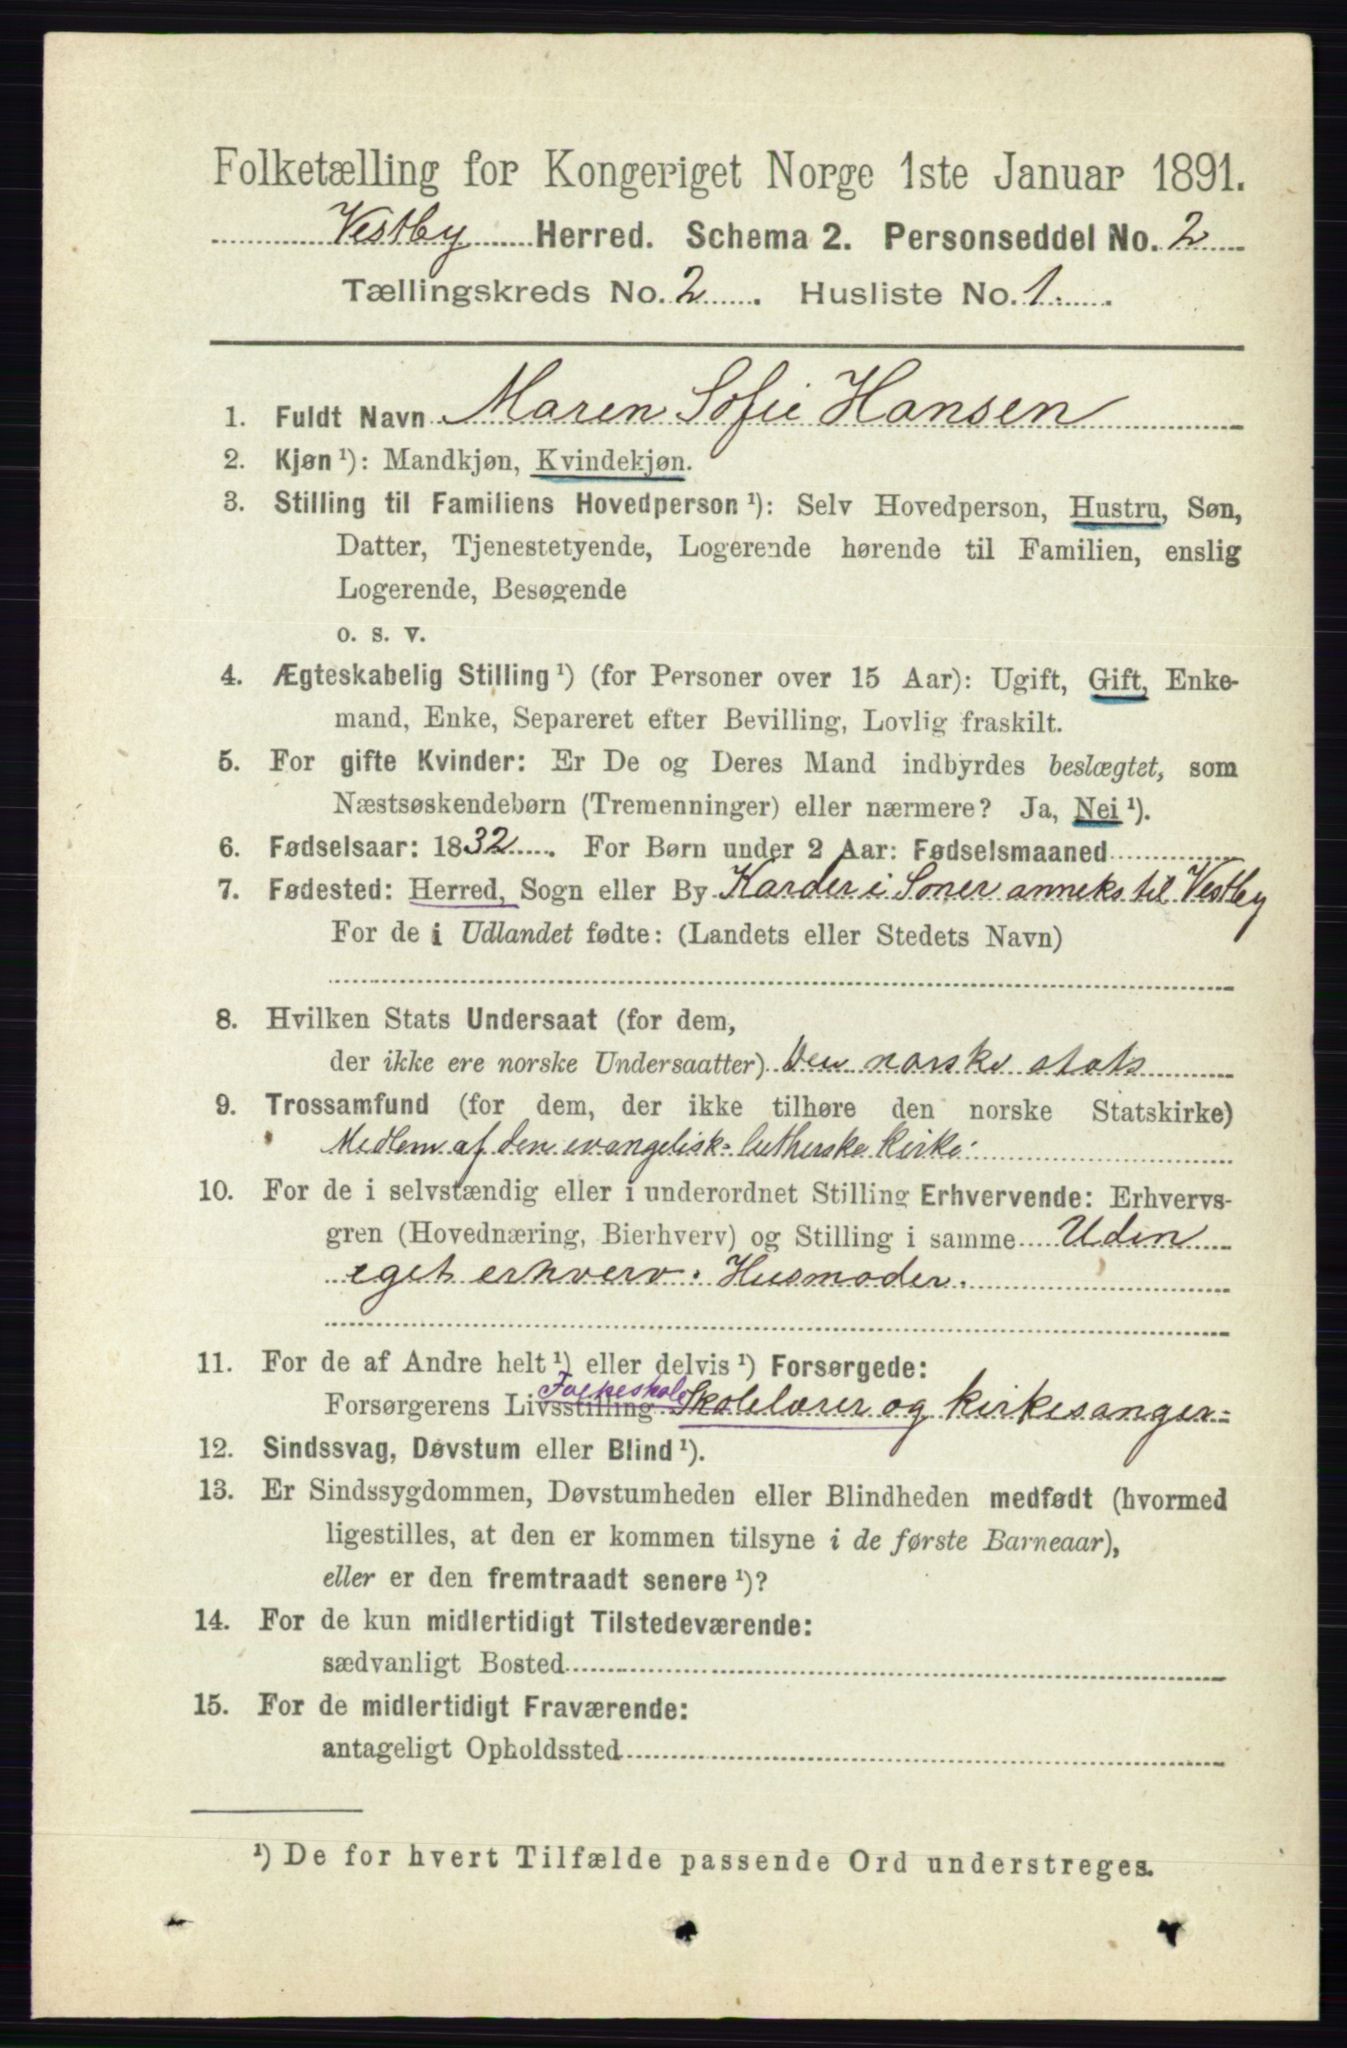 Folketælling for Kongeriget Norge 1ste Januar 1891.
Vestby Herred. Schema 2. Personseddel No. 2
Tællingskreds No. 2. Husliste No. 1.
1. Fuldt Navn Maren Sofie Hansen
2. Kjøn ¹): Mandkjøn, Kvindekjøn.
3. Stilling til Familiens Hovedperson ¹): Selv Hovedperson, Hustru, Søn,
Datter, Tjenestetyende, Logerende hørende til Familien, enslig
Logerende, Besøgende
o. s. v.
4. Ægteskabelig Stilling ¹) (for Personer over 15 Aar): Ugift, Gift, Enke-
mand, Enke, Separeret efter Bevilling, Lovlig fraskilt.
5. For gifte Kvinder: Er De og Deres Mand indbyrdes beslægtet, som
Næstsøskendebørn (Tremenninger) eller nærmere? Ja, Nei ¹).
6. Fødselsaar: 1832. For Børn under 2 Aar: Fødselsmaaned
7. Fødested: Herred, Sogn eller By Karder i Soner anneks til Vestby
For de i Udlandet fødte: (Landets eller Stedets Navn)
8. Hvilken Stats Undersaat (for dem,
der ikke ere norske Undersaatter) Den norske stats
9. Trossamfund (for dem, der ikke tilhøre den norske Statskirke)
Medlem af den evangelisk-lutherske kirke.
10. For de i selvstændig eller i underordnet Stilling Erhvervende: Erhvervs-
gren (Hovednæring, Bierhverv) og Stilling i samme Uden
eget erhverv. Husmoder.
11. For de af Andre helt ¹) eller delvis ¹) Forsørgede:
Folkeskole
Forsørgerens Livsstilling Skolelærer og kirkesanger
12. Sindssvag, Døvstum eller Blind ¹).
13. Er Sindssygdommen, Døvstumheden eller Blindheden medfødt (hvormed
ligestilles, at den er kommen tilsyne i de første Barneaar),
eller er den fremtraadt senere ¹)?
14. For de kun midlertidigt Tilstedeværende:
sædvanligt Bosted
15. For de midlertidigt Fraværende:
antageligt Opholdssted
¹) De for hvert Tilfælde passende Ord understreges.